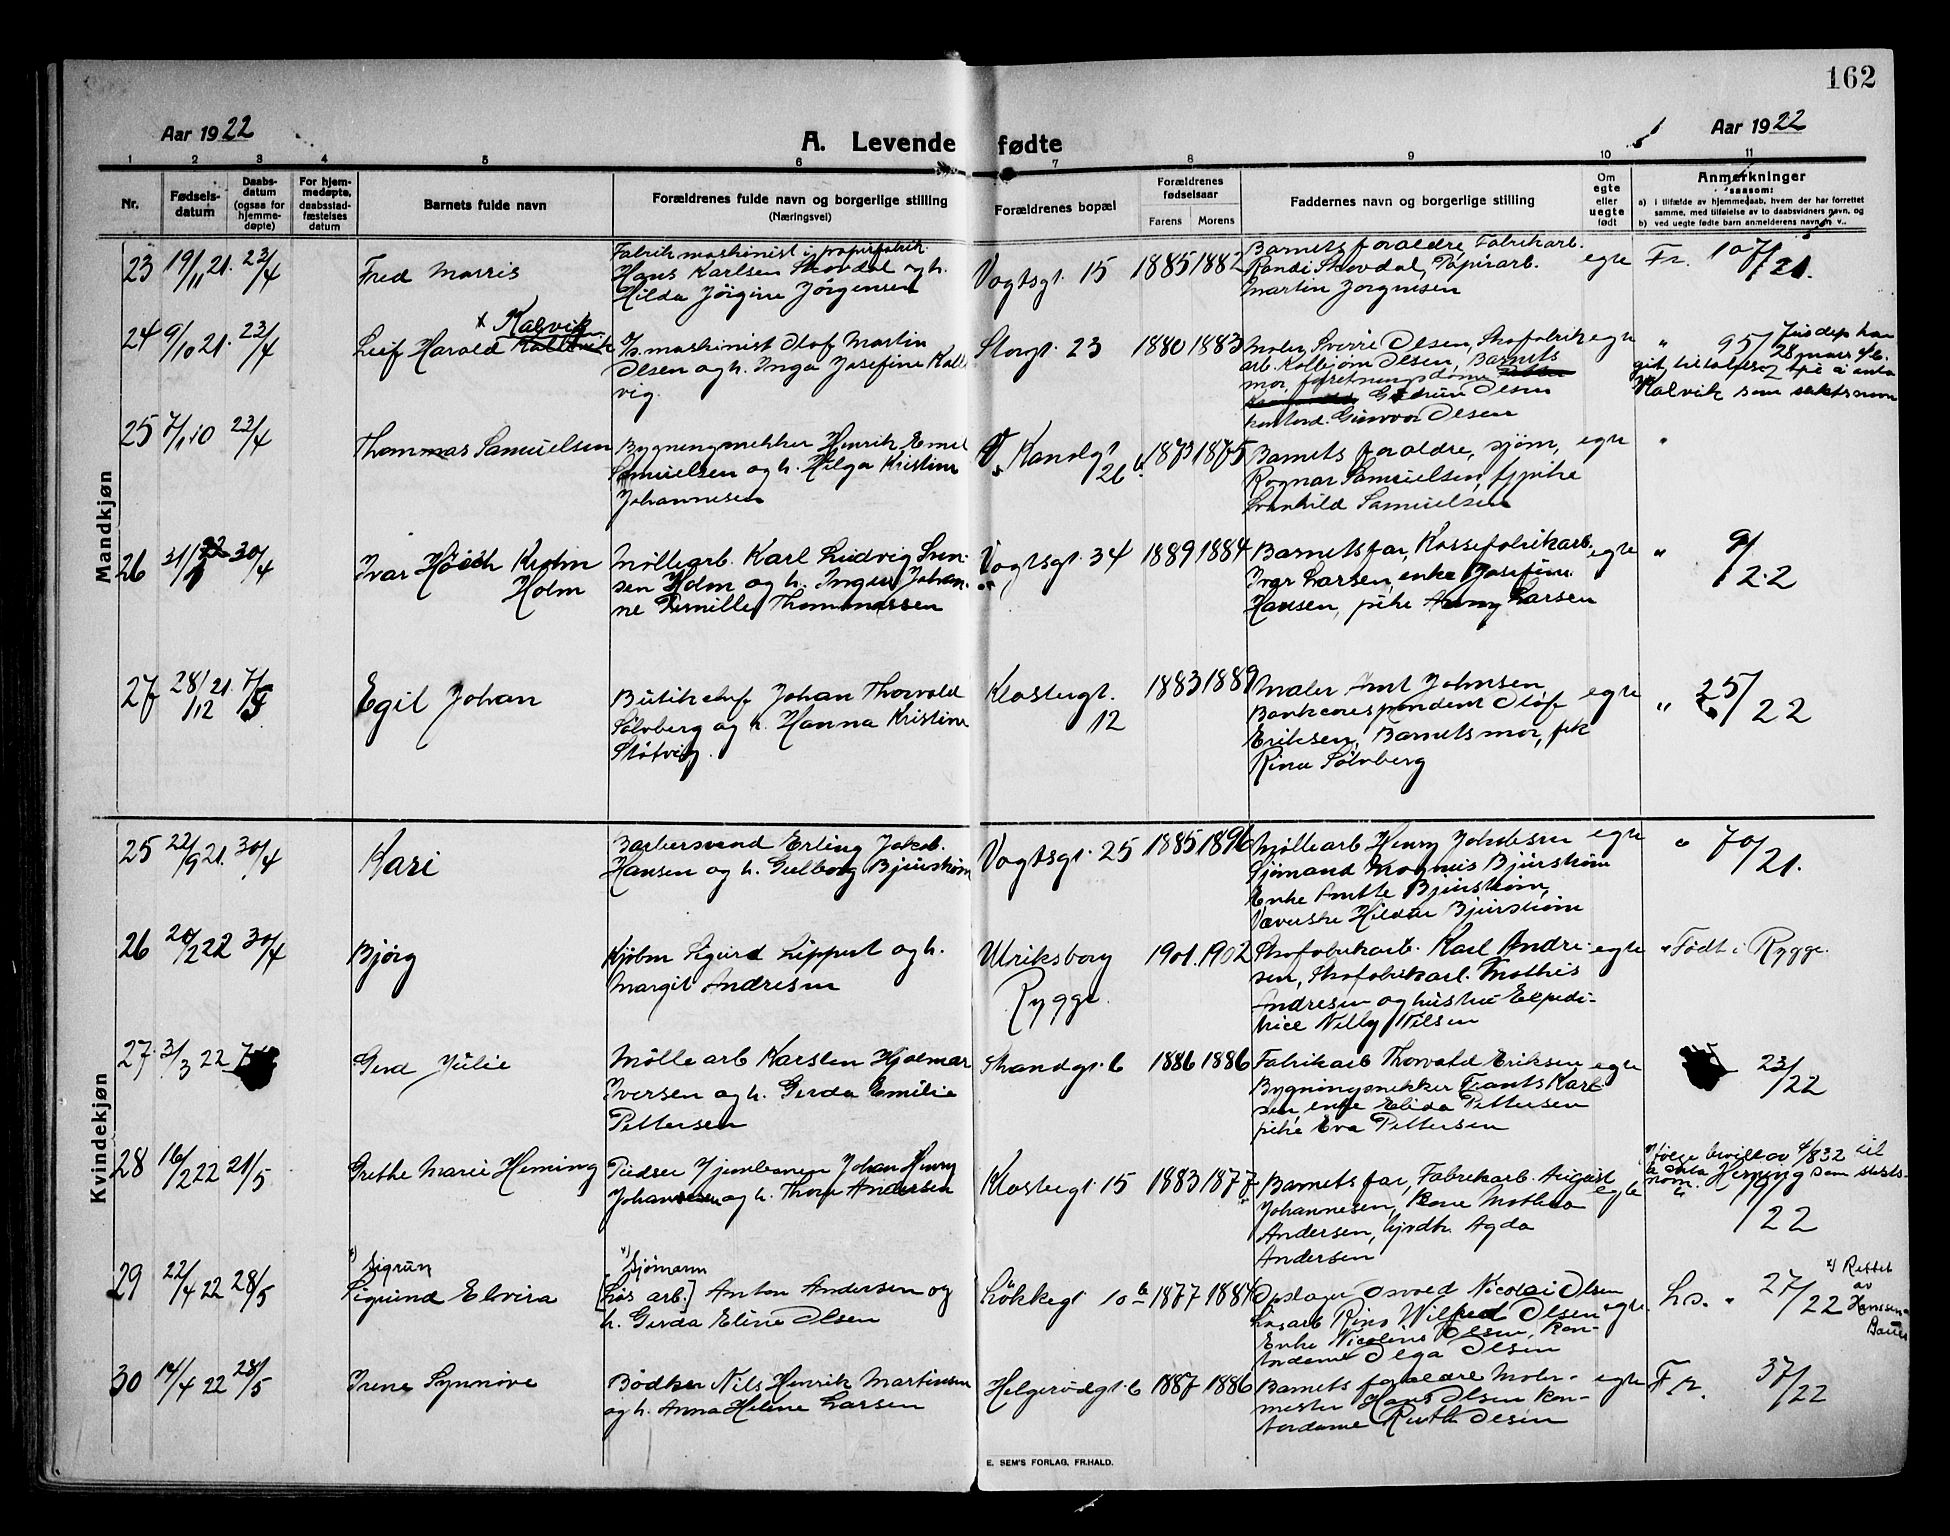 162
Aar 1922
A. Levende fødte
Aar 1922
1 2 3 4 5 6 7 8 9 10 11
Nr.
Fødsels-
datum
Daabs-
datum
(ogsaa for
hjemme-
døpte)
For hjem-
medøpte,
daabsstad-
fæstelses
datum
Barnets fulde navn
Forældrenes fulde navn og borgerlige stilling
(Næringsvei)
Forældrenes bopæl
Forældrenes
fødselsaar
Farens Morens
Faddernes navn og borgerlige stilling
Om
egte
eller
uegte
født
Anmerkninger
saasom:
a) i tilfælde av hjemmedaab, hvem der har forrettet
samme, med tilføielse av to daabsvidners navn, og
b) ved uegte fødte barn anmelderens navn m. v..
Mandkjøn
23 19/11 21. 23/4
Fred Morris
Fabrikmaskinist i papirfabrik
Hans Karlsen Skovdal og h.
Hilda Jörgine Jörgensen
Vogtsgt. 15
1885 1882
Barnets forældre, Fabrikarb.
Randi Skovdal, Papirarb.
Martin Jorgensen
egte
Fr. 107/21.
24 9/10 21. 23/4
x Kalvik
Leif Harald
maskinist Olof Martin
Olsen og h. Inga Josefine Kall
vig.
Storgt. 23
1880 1883
Maler Sverre Olsen, Skofabrik
arb. Kolbjørn Olsen, Barnets
mor, forretningsdame
Gudrun Olsen
Gunvor Olsen
egte
" 95/ Jusdep har
28 mars 46.
Kalvik som slektsnavn
25 7/1 10 23/4
Thommas Samuelsen
Bygningsnekker Henrik Emil
Samuelsen og h. Helga Kristine
Johannesen
V. Kanalgt
26 b
1873 1875
Barnets forældre, sjøm,
Ragnar Samuelsen, tj pike
Svanhild Samuelsen
egte
"
26 31/1 22 30/4
Ivar Holm
Holm
Møllearb. Karl Ludvig Sven-
sen Holm og h. Inger Johan-
ne Pernille Thommassen
Vogtsgt. 34
1889 1884
Barnets far, Kassefabrikarb.
Ivar Larsen, enke Josefine
Hansen, pike Larsen
egte
" 9/22
27 28/12 21. 7/5
Egil Johan
Butikchef Johan Thorvald
Sölvberg og h. Hanna Kristine
Slötvig.
Klostergt.
12
1883 1889
Maler Arnt Johnsen
Bankcorespondent Olof
Eriksen, Barnets mor, frk
Rina Sölvberg
egte
" 25/22
Kvindekjøn
25 22/9 21. 30/4
Kari
Barbersvend Erling Jakob.
Hansen og h. Gulborg Bjurstrøm
Vogtsgt. 25
1885 1896
Møllearb Henry Jakobsen
Sjømand Magnus Bjurstrøm
Enke Anette Bjurstrøm,
Væverske Hildur Bjurstrøm
egte
" 70/21.
26 20/2 22 30/4
Bjørg
Kjøbm Sigurd Lippert og h.
Margit Andresen
Ulriksborg
Rygge.
1901. 1902
Skofabrikarb. Karl Andre-
sen, Skofabrikarb. Mathis
Andresen og hustru Expedi-
trice Nilly Nilsen
egte
" Født i Rygge.
27. 3/3 22
Gerd Julie
Møllearb Karsten Hjalmar
Iversen og h. Gerda Emilie
Pettersen
Strandgt. 6
1886 1886
Fabrikarb Thorvald Eriksen
Bygningsnekker Frants Karl-
sen, enke Elida Pettersen
pike Eva Pettersen
egte
23/22
28 16/2 22 21/5
Grethe Marie Heming
Johan Henry
Johannesen og h. Thora Andersen
Klostergt 15
1883 1877
Barnets far, Fabrikarb. August
Johannesen, Mathea
Andersen, Agda
Andersen
egte
Ifølge bevill av 4/8 32 til
Heming som slekts-
navn.
/22
29 22/4 22 28/5
x) Sigrun
Sigrund Elvira
x) Sjømann
[Løs arb.] Anton Andersen og
h. Gerda Eline Olsen
Løkkegt 10 b
1877 1884
Opslager Osvald Nicolai Olsen
Løsarb Wilfred Olsen
Enke Nicoline Olsen, Kon-
tordame Olga Olsen
egte.
" 27/22
x) Rettet
av
Hanssen-
Bauer
30 14/4 22 28/5
Irene Synnøve
Bødker Nils Henrik Martinsen
og h. Anna Helene Larsen
Helgerødgt. 6
1887 1886
Barnets forældre Maler-
mester Hans Olsen Kon-
tordame Ruth Olsen
egte
Fr. 37/22
E. SEM'S FORLAG, FR.HALD.